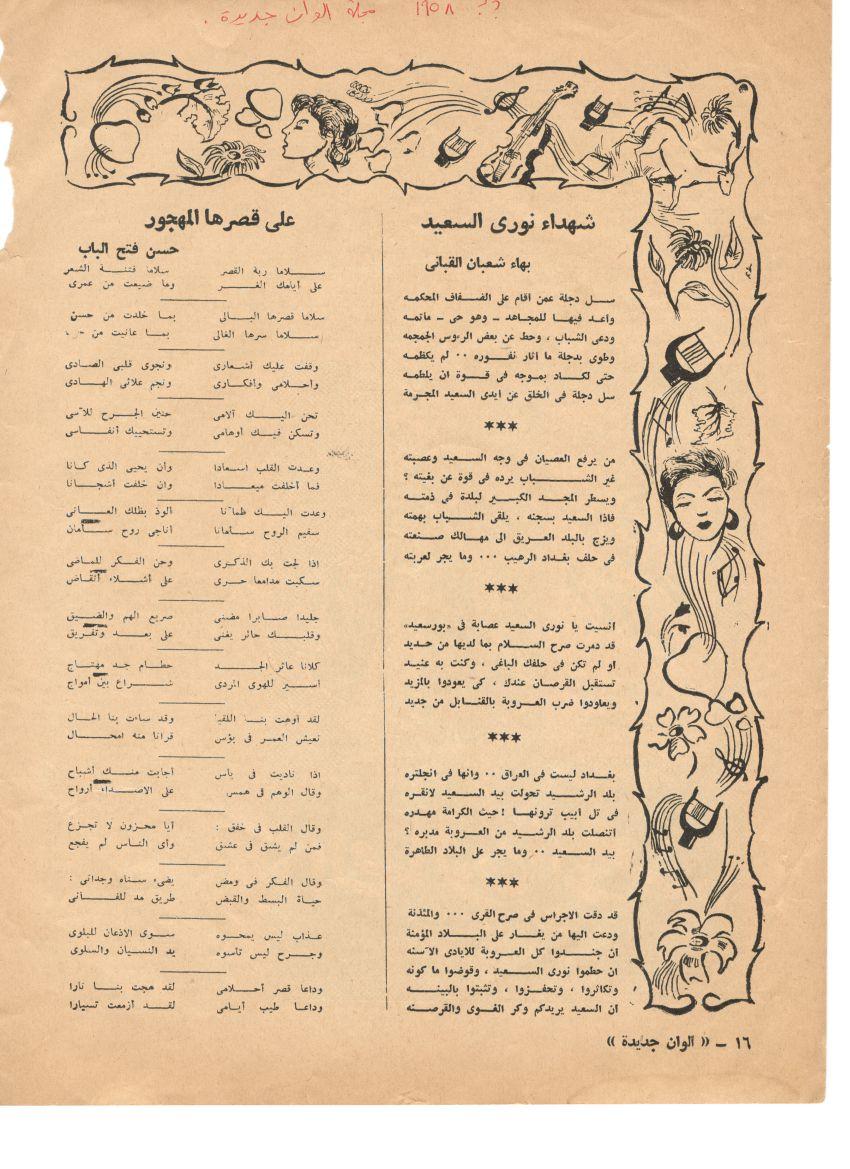 ؟؟ ١٩٥٨ مجلة الوان جديدة .
شهداء نورى السعيد
بهاء شعبان القبانى
سل دجلة عمن أقام على الضفاف المحكمه
وأعد فيها للمجاهد ـ وهو حى ـ مأتمه
ودعى الشباب ، وحط عن بعض الرءوس الجمجمه
وطوى بدجلة ما أثار نفوره ٠٠ لم يكظمه
حتى لكاد بموجه فى قوة ان يلطمه
سل دجلة فى الخلق عن أيدى السعيد المجرمة
***
من يرفع العصيان فى وجه السعيد وعصبته
غير الشباب يرده فى قوة عن بغيته ؟
ويسطر المجد الكبير لبلدة فى ذمته
فاذا السعيد بسجنه ، يلقى الشباب بهمته
ويزج بالبلد العريق الى مهالك صنعته
فى حلف بغداد الرهيب ٠٠٠ وما يجر لعربته
***
أنسيت يا نورى السعيد عصابة فى «بورسعيد»
قد دمرت صرح السلام بما لديها من حديد
أو لم تكن فى حلفك الباغى ، وكنت به عنيد
تستقبل القرصان عندك ، كى يعودوا بالمزيد
ويعاودوا ضرب العروبة بالقنابل من جديد
***
بغداد ليست فى العراق ٠٠ وانها فى انجلتره
بلد الرشيد تحولت بيد السعيد لانقره
فى تل أبيب ترونها ! حيث الكرامة مهدره
أتنصلت بلد الرشيد من العروبة مدبره ؟
بيد السعيد ٠٠ وما يجر على البلاد الطاهرة
***
قد دقت الاجراس فى صرح القرى ٠٠٠ والمئذنة
ودعت اليها من يغار على البلاد المؤمنة
أن جندوا كل العروبة للايادى الآسنه
ان حطموا نورى السعيد ، وقوضوا ما كونه
وتكاثروا ، وتحفزوا ، وتثبتوا بالبينه
أن السعيد يريدكم وكر الغوى والقرصنه
على قصرها المهجور
حسن فتح الباب
سلاما ربة القصر سلاما فتنة الشعر
على أيامك الغر وما ضيعت من عمرى
سلاما قصرها البالى بما خلدت من حسن
سلاما سرها الغالى بما عانيت من
وقفت عليك أشعارى ونجوى قلبى الصادى
وأحلامى وأفكارى ونجم علائى الهادى
تحن اليك آلامى حنين الجرح للآسى
وتسكن فيك أوهامى وتستحييك أنفاسى
وعدت القلب اسعادا وأن يحيى الذى كانا
فما أخلفت ميعادا وان خلفت أشجانا
وعدت اليك ظمآنا ألوذ بظلك العانى
سقيم الروح سأمانا أناجى روح سأمان
اذا لجت بك الذكرى وحن الفكر للماضى
سكبت مدامعا حرى على أشلاء أنقاض
جليدا صابرا مضنى صريع الهم والضيق
وقلبك حائر يفنى على بعد وتفريق
كلانا عاثر الجد حطام جد مهتاج
أسير للهوى المردى شراع بين أمواج
لقد أوهت بنا اللقيا وقد ساءت بنا الحال
نعيش العمر فى بؤس قرانا منه امحال
اذا ناديت فى يأس أجابت منك أشباح
وقال الوهم فى همس على الاصداء أرواح
وقال القلب فى خفق : أيا محزون لا تجزع
فمن لم يشق فى عشق وأى الناس لم يفجع
وقال الفكر فى ومض يضىء سناه وجدانى :
حياة البسط والقبض طريق مد للفانى
عذاب ليس يمحوه سوى الاذعان للبلوى
وجرح ليس تأسوه يد النسيان والسلوى
وداعا قصر أحلامى لقد هجت بنا نارا
وداعا طيب أيامى لقد أزمعت تسيارا
١٦ ـ « ألوان جديدة »